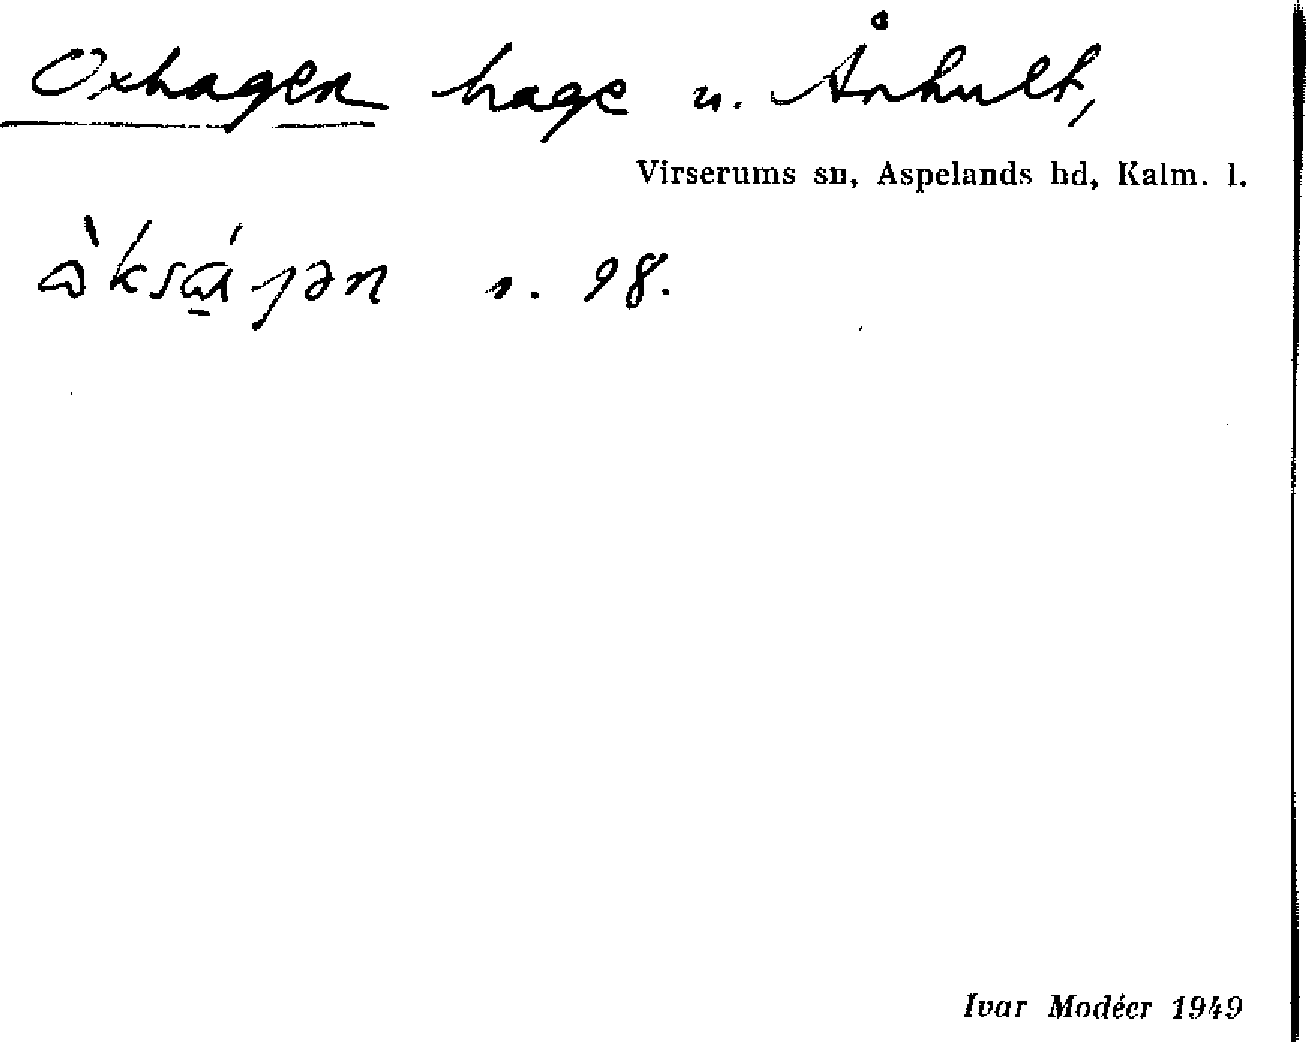 Oxhagen hage u. Århult,
Virserums sn, Aspelands hd, Kalm. l.
s. 98.
Ivar Modéer 1949